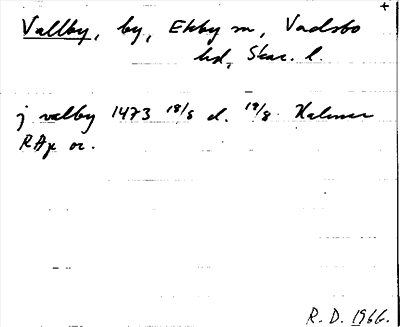 +
Vallby, by, Ekby sn, Vadsbo
hd, Skar. l.
j valby 1473 18/5 d. 19/8 Kalmar
RAp or.
R. D. 1966.